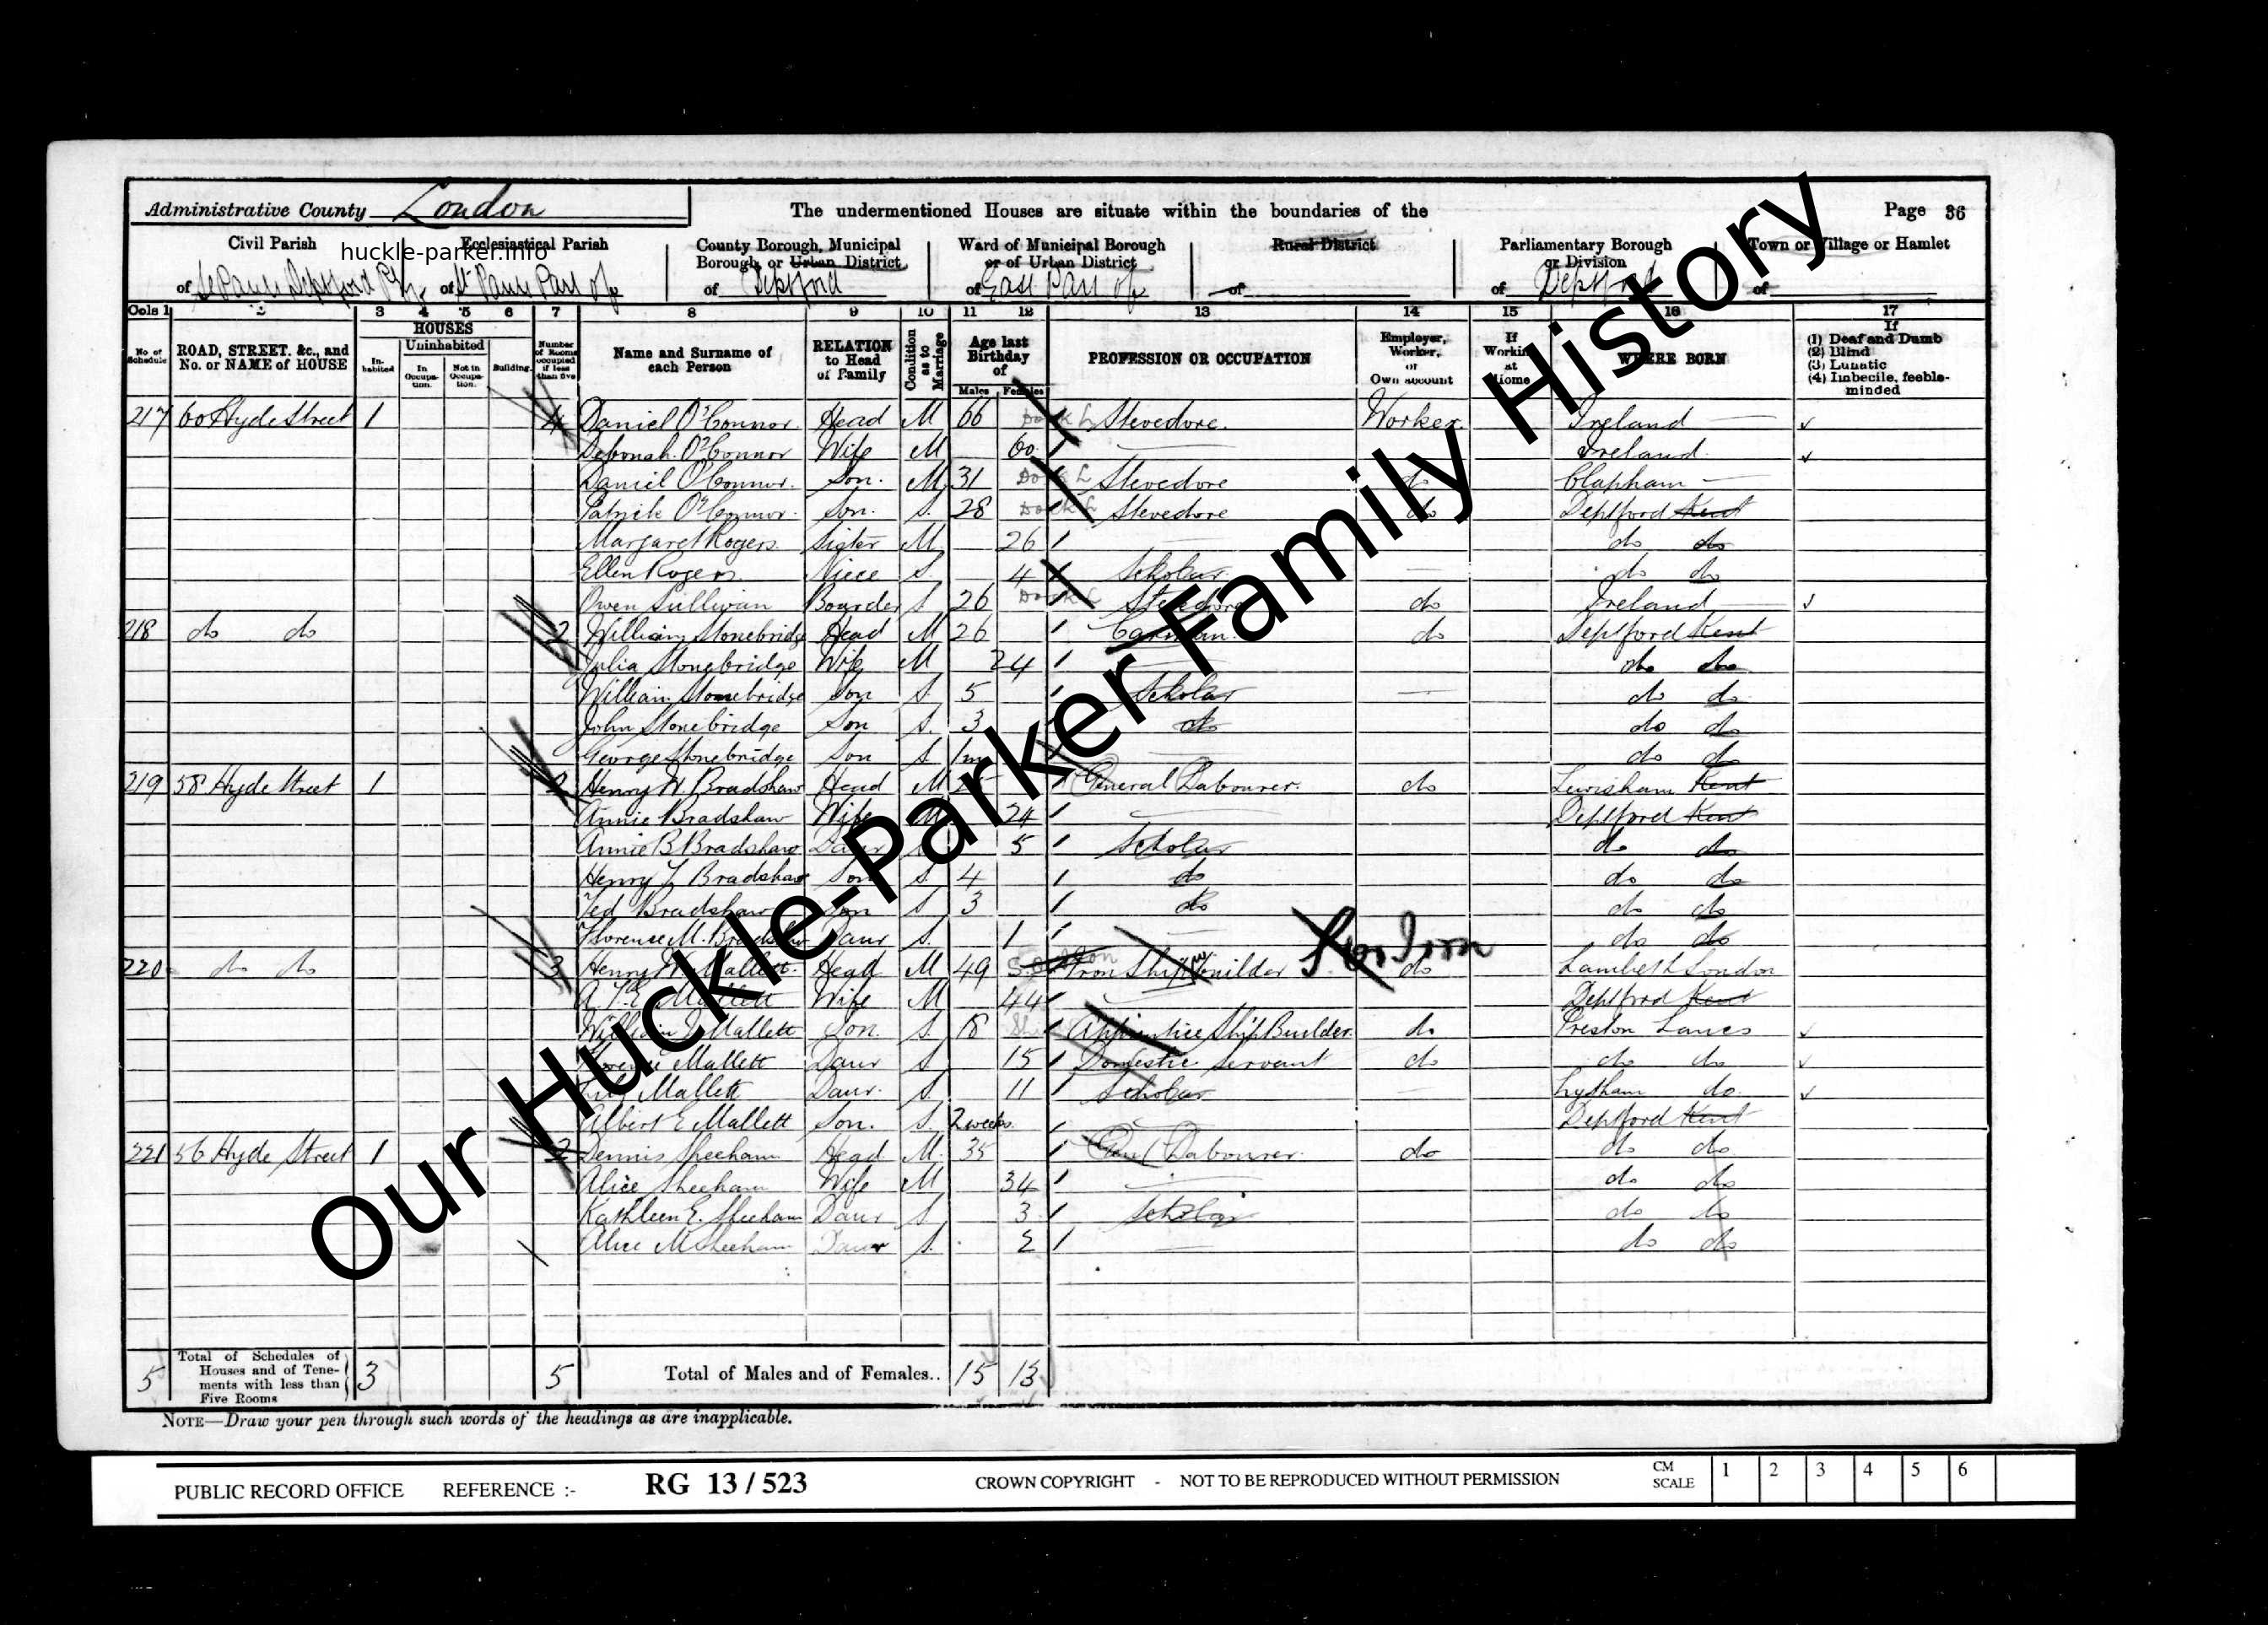 Administrative County London
The undermentioned Houses are situate within the boundaries of the
Page 36
Civil Parish
Ecclesiastical Parish
County Borough, Municipal Borough, or Urban District
Ward of Municipal Borough or of Urban District
Rural District
Parliamentary Borough or Division
Town or Village or Hamlet
huckle-parker.info
of St Pauls Deptford
of St Pauls Part of
of Deptford
of East Part of
of
of Deptford
of
Cols 1 2 3 4 5 6 7 8 9 10 11 12 13 14 15 16 17
No of Schedule
ROAD, STREET, &c., and No. or NAME of HOUSE
HOUSES
Inhabited
Uninhabited
In Occupation.
Not in Occupation.
Building.
Number of Rooms occupied if less than five
Name and Surname of each Person
RELATION to Head of Family
Condition as to Marriage
Age last Birthday of
Males Females
PROFESSION OR OCCUPATION
Employer, Worker, or Own account
If Working at Home
WHERE BORN
If
(1) Deaf and Dumb
(2) Blind
(3) Lunatic
(4) Imbecile, feeble-minded
217 60 Hyde Street 1 4 Daniel O'Connor Head M 66 Dock L Stevedore Worker Ireland
Deborah O'Connor Wife M 60 Ireland
Daniel O'Connor Son M 31 Dock L Stevedore do Clapham
Patrick O'Connor Son S 28 Dock L Stevedore do Deptford Kent
Margaret Rogers Sister M 26 do do
Ellen Rogers Niece S 4 Scholar do do
Owen Sullivan Boarder S 26 Dock L Stevedore do Ireland
218 do do 2 William Stonebridge Head M 26 Carman do Deptford Kent
Julia Stonebridge Wife M 24 do do
William Stonebridge Son S 5 Scholar do do
John Stonebridge Son S 3 do do do
George Stonebridge Son S 1m do do
219 58 Hyde Street 1 2 Henry W Bradshaw Head M General Labourer do Lewisham Kent
Annie Bradshaw Wife M 24 Deptford Kent
Annie B Bradshaw Daur 5 Scholar do do
Henry Bradshaw Son S 4 do do do
Ted Bradshaw Son S 3 do do do
Florence M. Bradshaw Daur S 1 do do
220 do do 3 Henry W Mallett Head M 49 Iron Ship builder Iron do Lambeth London
Mallett Wife M 44 Deptford Kent
William Mallett Son S 18 Apprentice Ship Builder do Preston Lancs
Mallett Daur S 15 Domestic Servant do do do
Mallett Daur S 11 Scholar Lytham do
Albert E Mallett Son S 2 weeks Deptford Kent
221 56 Hyde Street 1 2 Dennis Sheeham Head M 35 Genl Labourer do do do
Alice Sheeham Wife M 34 do do
Kathleen E. Sheeham Daur S 3 Scholar do do
Alice M Sheeham Daur S 2 do do
5 Total of Schedules of Houses and of Tenements with less than Five Rooms 3 5 Total of Males and of Females.. 15 13
NOTE—Draw your pen through such words of the headings as are inapplicable.
Our Huckle-Parker Family History
PUBLIC RECORD OFFICE REFERENCE :- RG 13 / 523 CROWN COPYRIGHT - NOT TO BE REPRODUCED WITHOUT PERMISSION CM SCALE 1 2 3 4 5 6